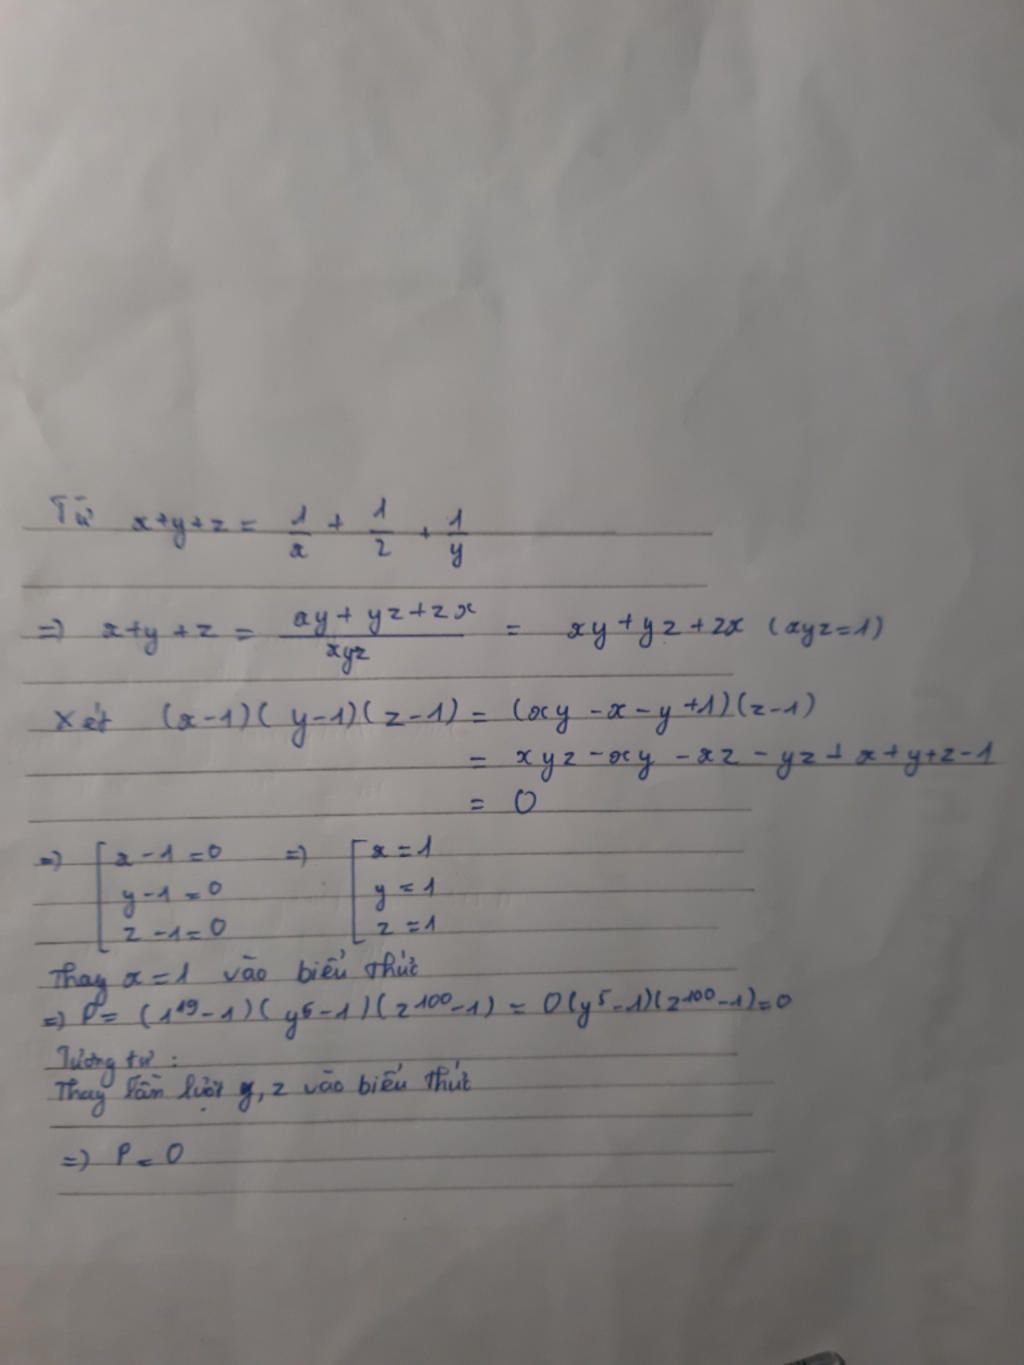 Từ x+y+z = 1/x + 1/z + 1/y
=> x+y+z = (xy+yz+zx)/xyz = xy+yz+zx (xyz=1)
Xét (x-1)(y-1)(z-1) = (xy-x-y+1)(z-1)
= xyz-xy-xz-yz+x+y+z-1
= 0
=> [ x-1=0 => [ x=1
y-1=0 y=1
z-1=0 z=1
Thay x=1 vào biểu thức
=> P= (1^19-1)(y^5-1)(z^100-1) = 0(y^5-1)(z^100-1)=0
Tương tự :
Thay lần lượt y, z vào biểu thức
=> P = 0